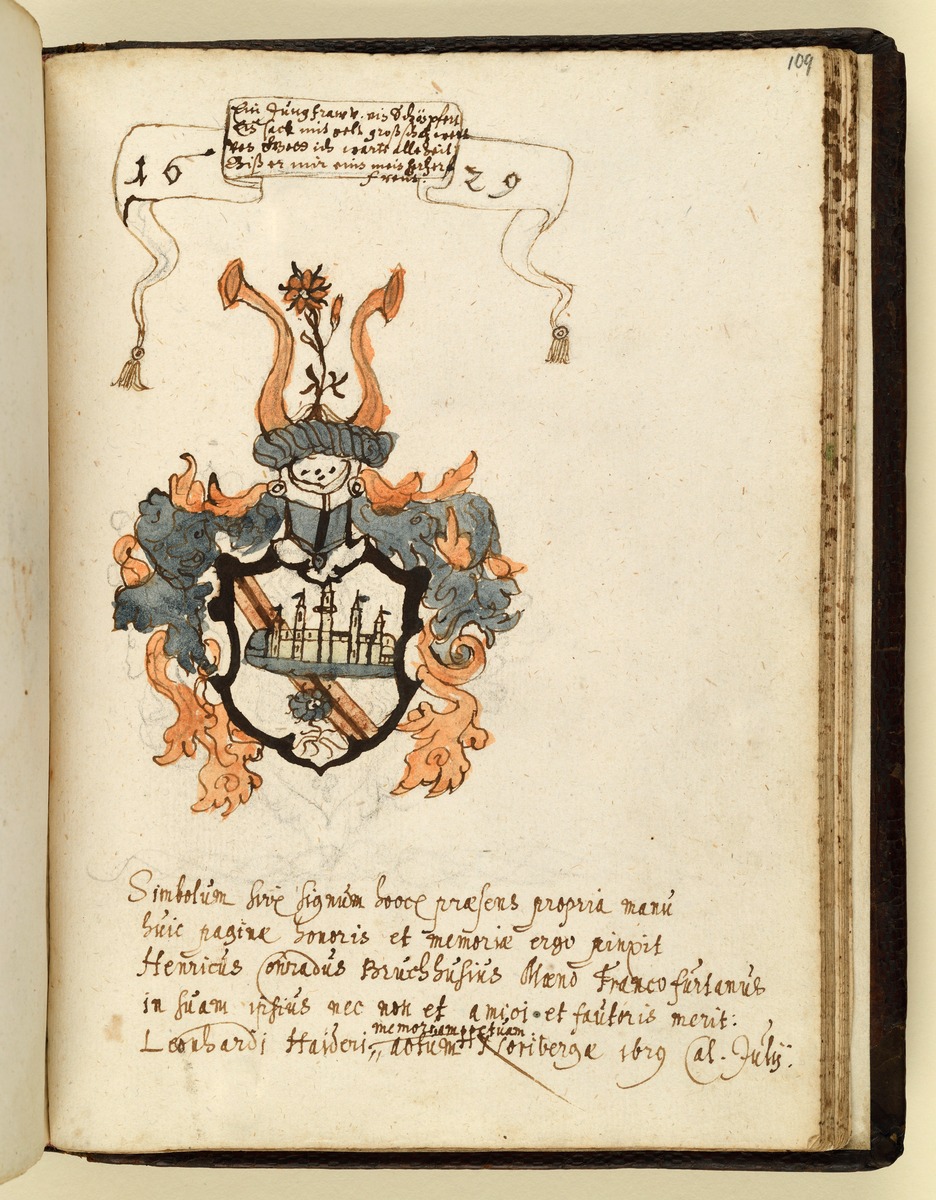 109
Ein Jungfraw v. ein Schöpfert
Ein sack mit gelt groß schatz wert
ich warte alle Zeit
Biß er mir eins mein hertz er
freut.
16 29
Simbolum sive signum hocce præsens propria manu
huic paginæ honoris et memoriæ ergo pinxit
Henricus Conradus Bruchhusius Mœno Francofurtanus
in suam ipsius nec non et amici et fautoris merit:
Leonhardi Haideri memoriam perpetuam actum Noribergæ 1629 Cal. Julij: